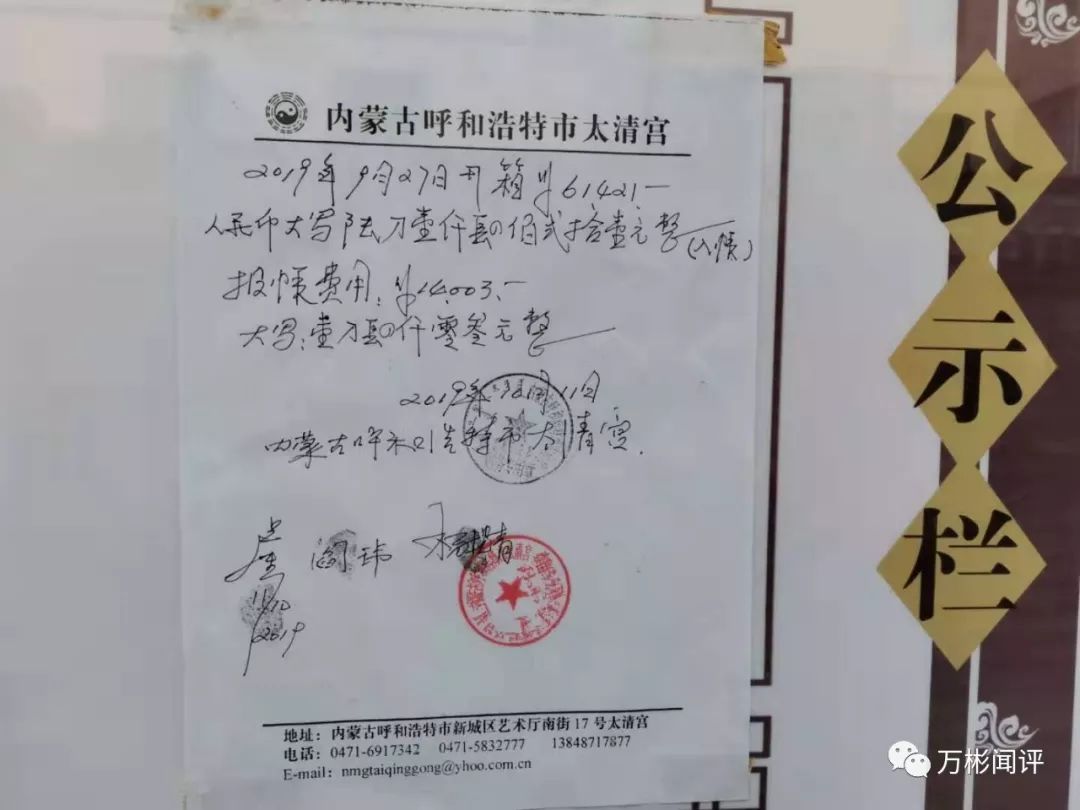 内蒙古呼和浩特市太清宫
2019年9月27日开箱¥61421.—
人民币大写陆万壹仟肆佰贰拾壹元整(入帐)
报帐费用:¥14.003.—
大写:壹万肆仟零叁元整
2019年10月11日
内蒙古呼和浩特市太清宫.
阎玮
11/10
2019
地址:内蒙古呼和浩特市新城区艺术厅南街17号太清宫
电话:0471-6917342 0471-5832777 13848717877
E-mail:nmgtaiqinggong@yhoo.com.cn
公示栏
万彬闻评